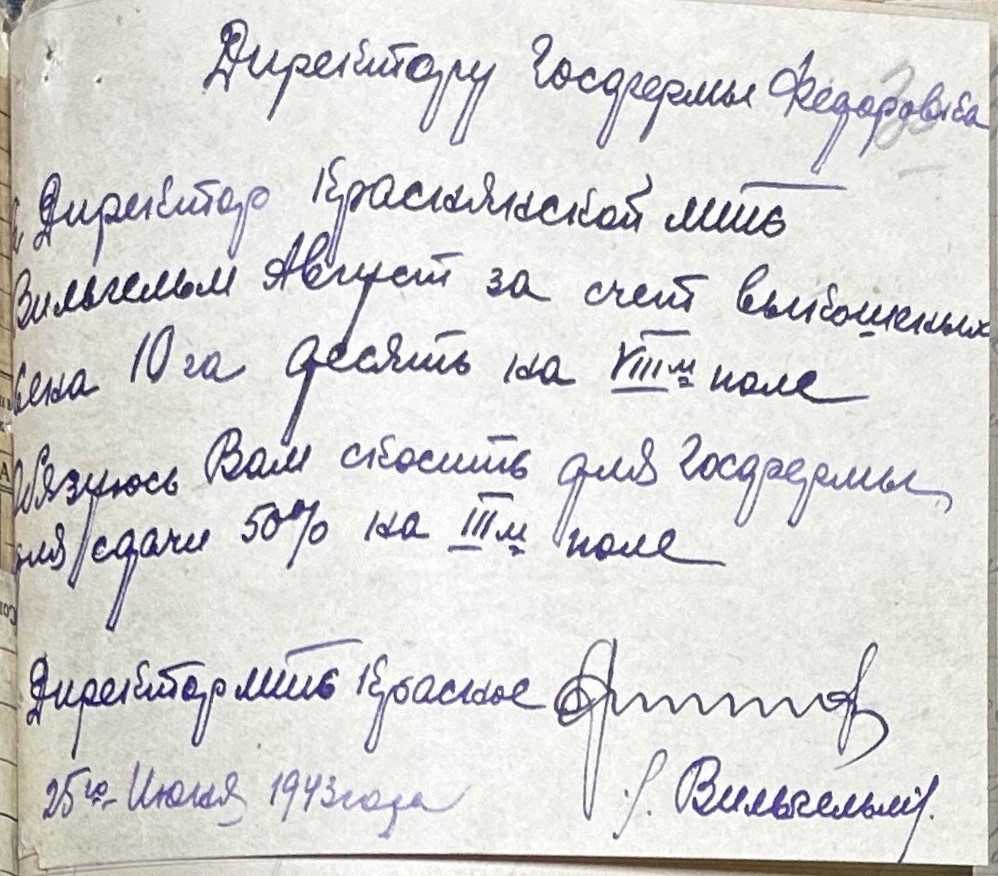 Директору Госфермы Федоровка
Я Директор Краснянской мтс
Вильгельм Август за счет выкошенных
сена 10 га десять на VIIIм поле
Обязуюсь Вам скосить для Госфермы,
для сдачи 50% на IIIм поле
Директор мтс Красное
25го Июня 1943 года
(Вильгельм).